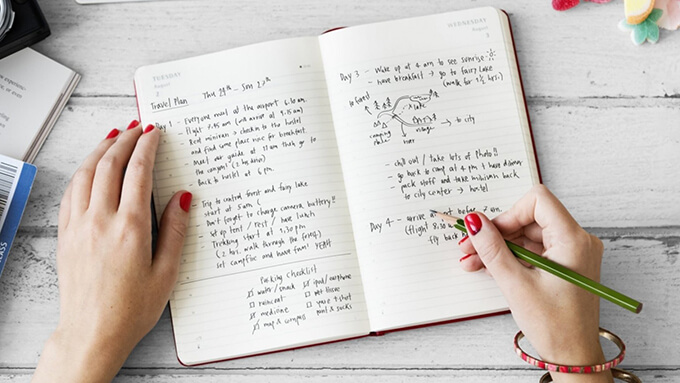 TUESDAY
August
2
Travel Plan
Day 1 - Everyone meet at the airport 6.30 am
- Flight 7.45 am (will arrive at 9.15 am)
- Rent minivan → checkin to the hostel
and find some place nice for breakfast.
- Meet our guide at 11 am then go to
the campsite (2 by
- Back to hostel at 6 pm
- Trip to central forest and fairy lake
start at 5 am (
- Don't forget to charge camera, battery!!
Set up tent / rest / have lunch
Trekking start at 1.30 pm
(2 hrs. walk through the forest)
set campfire and have fun! YEAH
Packing Checklist
water / snack
raincoat
medicine
map & compass
ipod / earphone
wet tissue
pants & socks
WEDNESDAY
August
3
Day 3 - Wake up at 4 am to see sunrise
- have breakfast → go to fairy lake
(walk for 1 1/2 hrs.)
to forest
camping place
river
village
→ to city
- chill out / take lots of photo!!
- go back to camp at 4 pm + have dinner
- pack stuff and take minivan back
to city center → hostel
Day 4 - arrive before 7 am
(flight 8.30
fly back